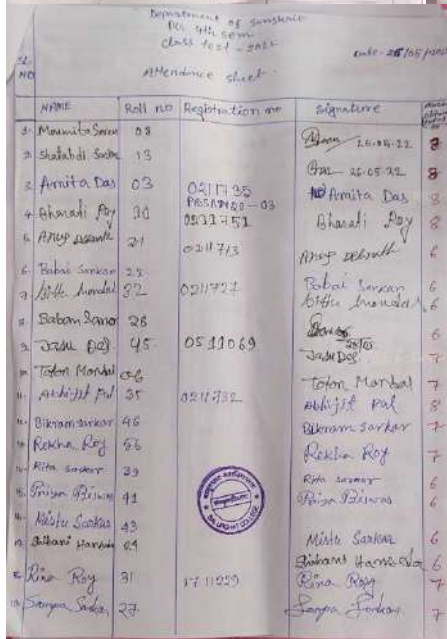 Department of Sanskrit
PG 4th Sem
Class test - 2022
Date - 26/05/2022
SL NO
Attendance sheet.
NAME Roll no Registration no Signature
1. Moumita Soren 08 26.05.22 7
2. Shatabdi Sarkar 13 26.05.22 8
3. Amita Das 03 0211735 Amita Das 8
4. Bharati Roy 30 0211751 Bharati Roy 8
5. Anup Debnath 21 0211713 Anup Debnath 6
6. Babai Sarkar 22 Babai Sarkar 6
7. Bittu Mondal 32 0211727 Bittu Mondal 6
8. Babam 28 6
9. Jasu Das 45 0511069 Jasu Das 7
10. Toton Mondal 06 Toton Mondal 7
11. Abhijit Pal 35 0211732 Abhijit Pal 8
12. Bikram Sarkar 46 Bikram Sarkar 7
13. Rekha Roy 56 Rekha Roy 7
14. Rita Sarkar 39 Rita Sarkar 6
15. Priya Biswas 41 Priya Biswas 6
16. Mistu Sarkar 43 Mistu Sarkar 6
17. Hansda 6
18. Rina Roy 31 1711229 Rina Roy 7
19. Sampa Sarkar 27 Sampa Sarkar 7
BALURGHAT COLLEGE